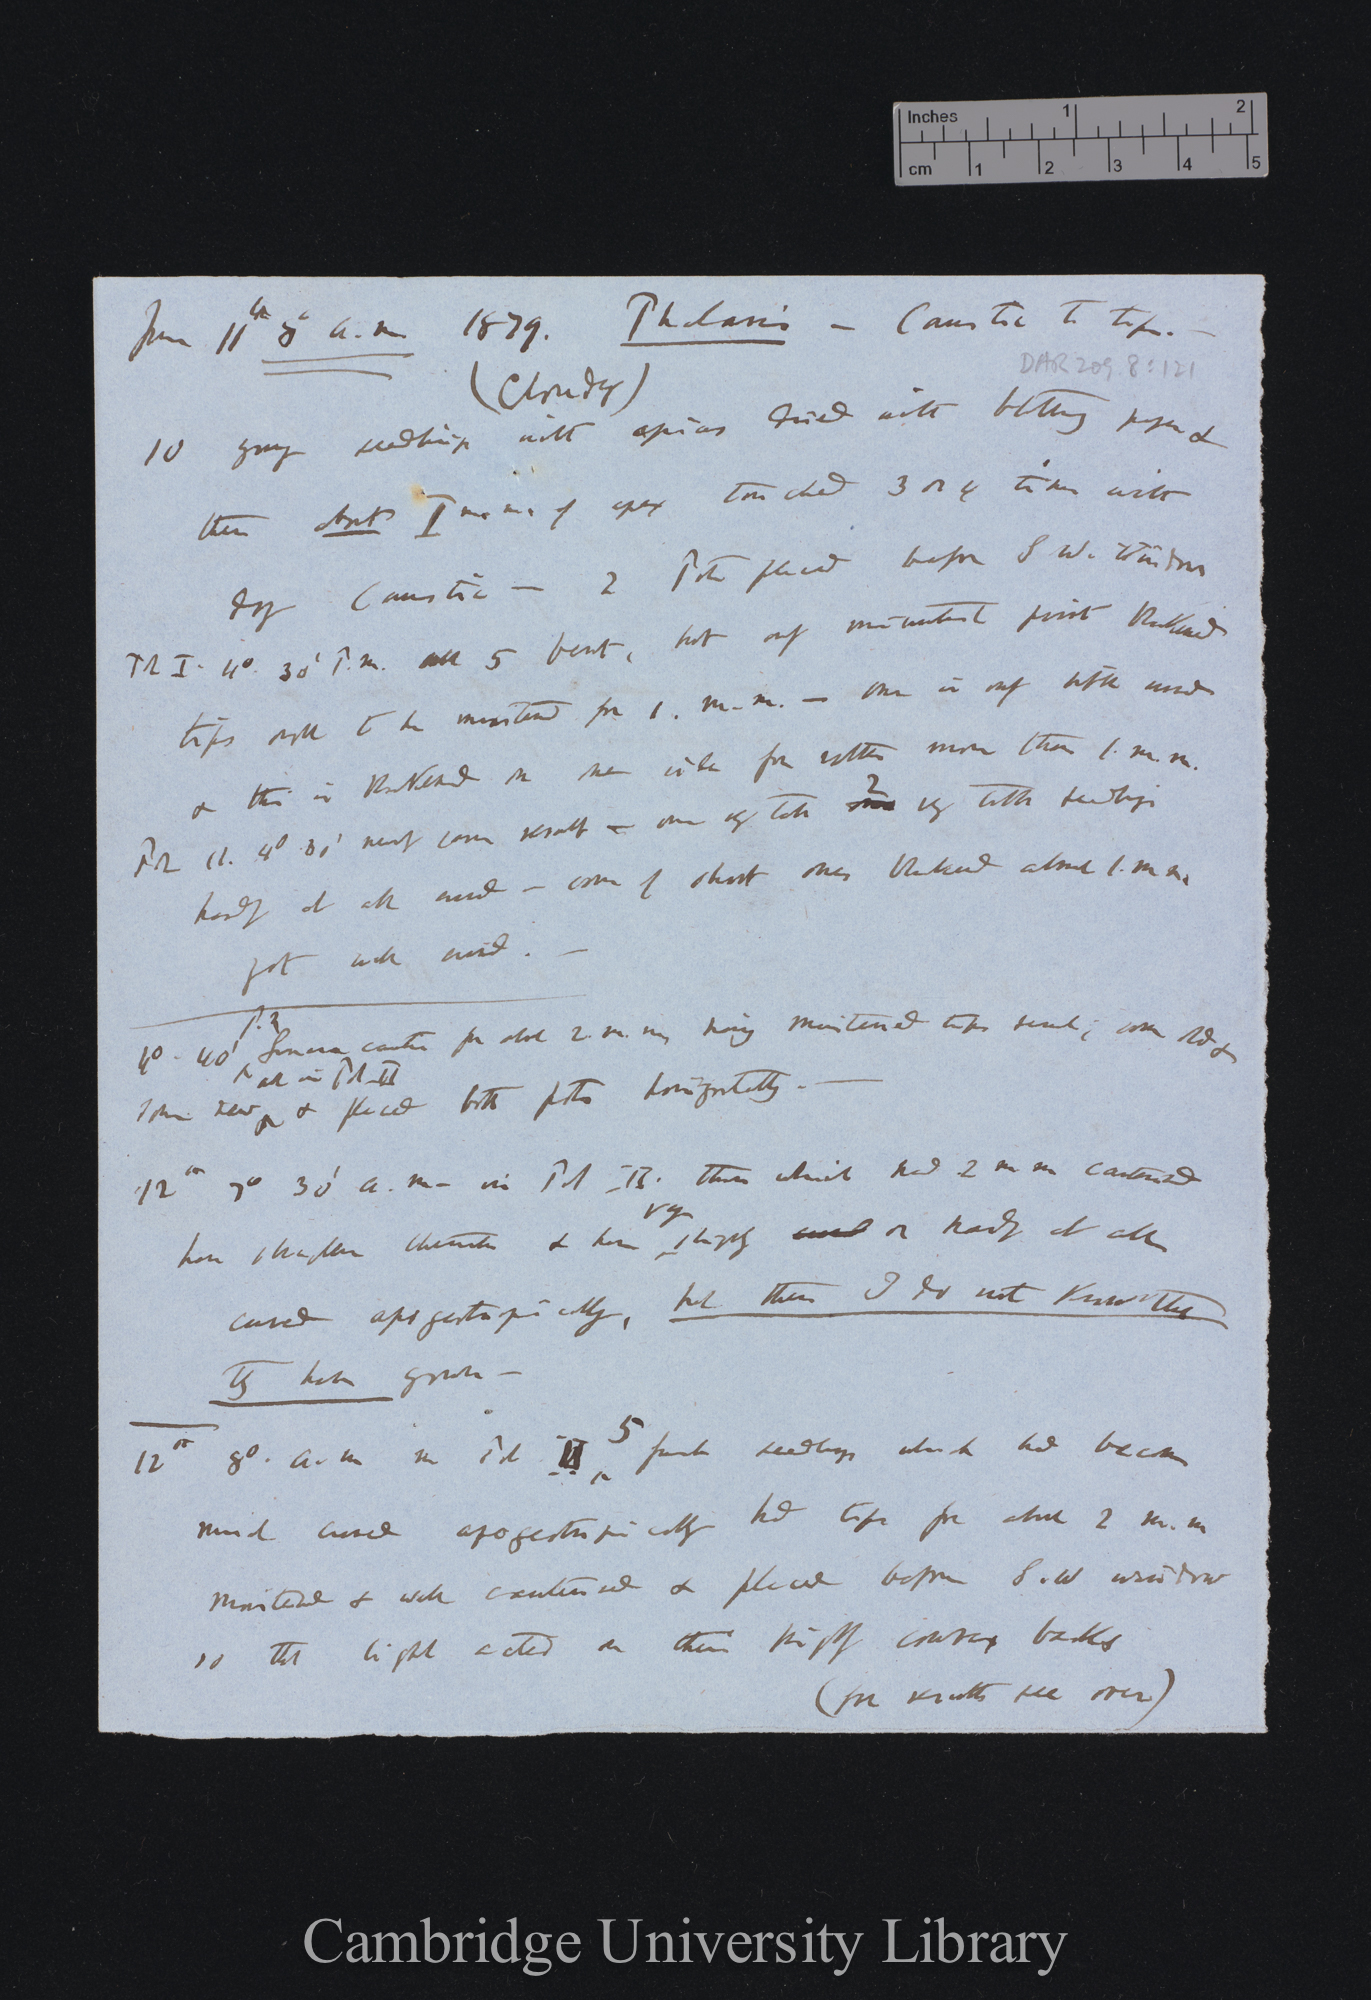 Inches 1 2
cm 1 2 3 4 5
June 11th 8° a.m. 1879. Phalaris — Caustic to tips. —
DAR 209.8:121
(Cloudy)
10 young seedlings with apices dried with blotting paper &
then about I m.m. of apex touched 3 or 4 times with
dry Caustic — 2 Pots placed before S.W. Window
Pot I. 4°. 30' P.m. all 5 bent, but only minutest point blackened
tips ought to be moistened for 1. m.m. — one is only little curved
& this is blackened on one side for rather more than 1. m.m.
Pot II. 4° 30' nearly same result — one very tall 2 very little seedlings
hardly at all curved — some of short ones blackened about 1. m.m.
yet well curved. —
4°. 40' P.m. caustic for about 2. m.m. having moistened tips well; some old &
all in Pot II
some new & placed both pots horizontally. —
12th 7° 30' a.m. in Pot II. those which had 2 mm cauterised
have straightened themselves & have very slightly or hardly at all
curved apogeotropically, but then I do not know that
they have grown —
12th 8°. a.m in Pot II 5 fresh seedlings which had become
much curved apogeotropically had tips for about 2 m.m
moistened & well cauterised & placed before S.W window
so that light acted on their highly convex backs
(for results see over)
Cambridge University Library